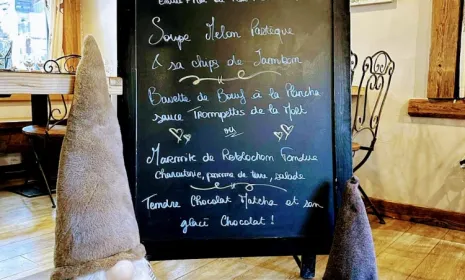 Soupe Melon Pastèque
& sa chips de Jambon
Bavette de Bœuf à la Planche
sauce Trompettes de la Mort
ou
Marmite de Reblochon Fondue
charcuterie, pomme de terre, salade
Tendre Chocolat Matcha et son
glacé Chocolat !